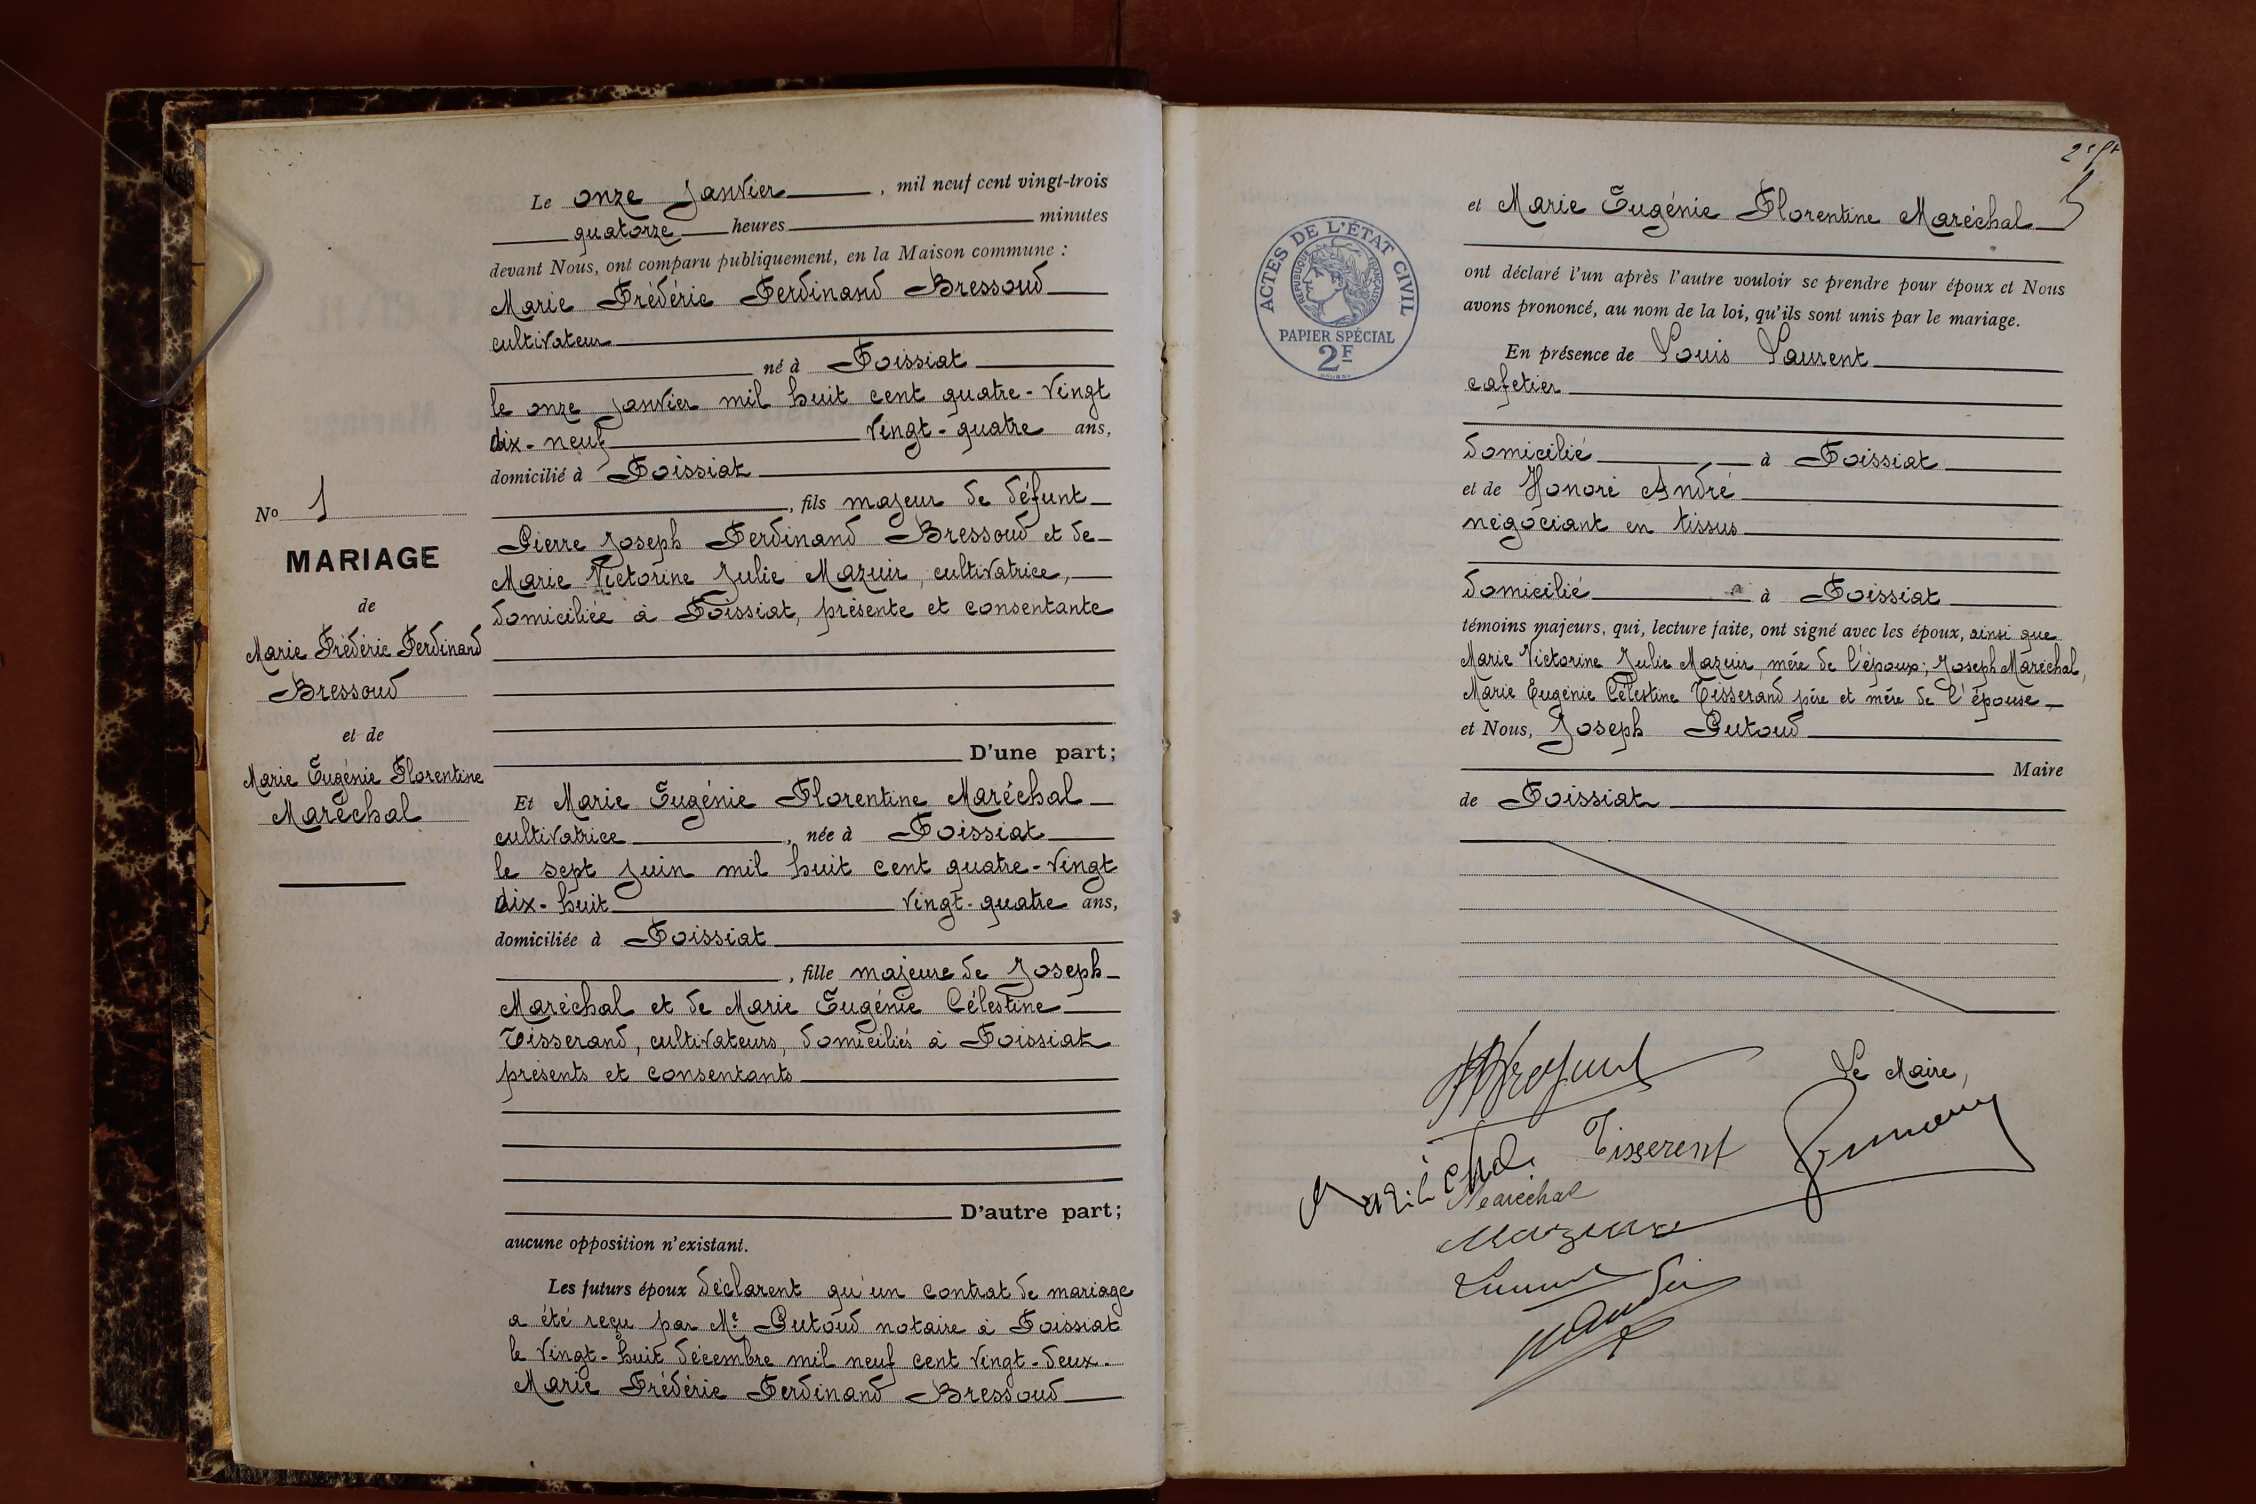 Le onze janvier, mil neuf cent vingt-trois
quatorze heures minutes
devant Nous, ont comparu publiquement, en la Maison commune :
Marie Frédéric Ferdinand Bressoud
cultivateur
né à Foissiat
le onze janvier mil huit cent quatre-vingt
dix-neuf vingt-quatre ans,
domicilié à Foissiat
, fils majeur de défunt
Pierre Joseph Ferdinand Bressoud et de
Marie Victorine Julie Mazuir, cultivatrice,
domiciliée à Foissiat, présente et consentante
D'une part;
Et Marie Eugénie Florentine Maréchal
cultivatrice, née à Foissiat
le sept juin mil huit cent quatre-vingt
dix-huit vingt-quatre ans,
domiciliée à Foissiat
, fille majeure de Joseph
Maréchal et de Marie Eugénie Célestine
Tisserand, cultivateurs, domiciliés à Foissiat
présents et consentants
D'autre part;
aucune opposition n'existant.
Les futurs époux déclarent qu'un contrat de mariage
a été reçu par Me Putoud notaire à Foissiat
le vingt-huit décembre mil neuf cent vingt-deux.
Marie Frédéric Ferdinand Bressoud
No 1
MARIAGE
de
Marie Frédéric Ferdinand
Bressoud
et de
Marie Eugénie Florentine
Maréchal
et Marie Eugénie Florentine Maréchal
ont déclaré l'un après l'autre vouloir se prendre pour époux et Nous
avons prononcé, au nom de la loi, qu'ils sont unis par le mariage.
En présence de Louis Laurent
cafetier
domicilié à Foissiat
et de Honoré André
négociant en tissus
domicilié à Foissiat
témoins majeurs, qui, lecture faite, ont signé avec les époux, ainsi que
Marie Victorine Julie Mazuir, mère de l'époux; Joseph Maréchal,
Marie Eugénie Célestine Tisserand père et mère de l'épouse,
et Nous, Joseph Putoud
Maire
de Foissiat
Le Maire,
Tisserent
Maréchal
ACTES DE L'ÉTAT CIVIL
RÉPUBLIQUE FRANÇAISE
PAPIER SPÉCIAL
2F